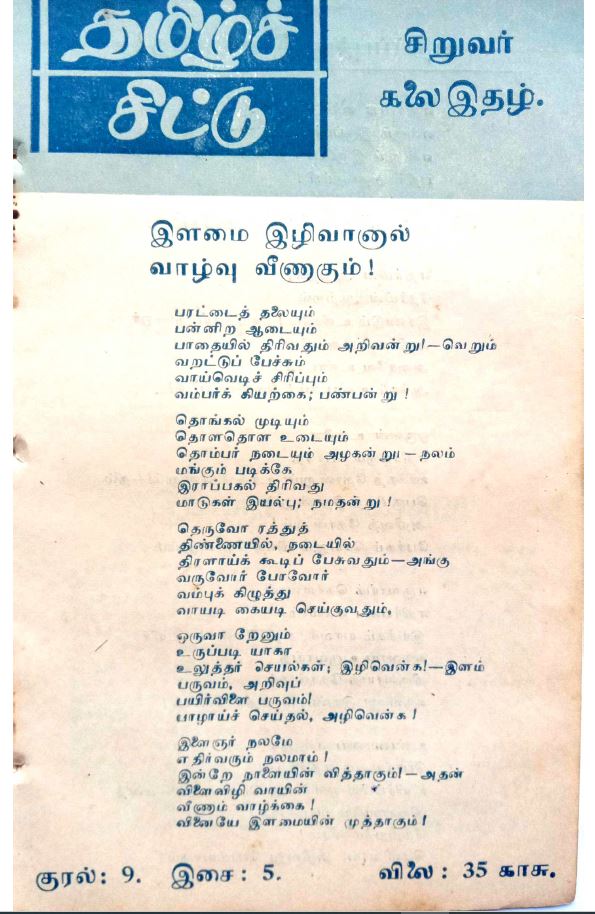 தமிழ்ச்
சிட்டு
சிறுவர்
கலை இதழ்.
இளமை இழிவானால்
வாழ்வு வீணாகும்!
பரட்டைத் தலையும்
பன்னிற ஆடையும்
பாதையில் திரிவதும் அறிவன்று!—வெறும்
வறட்டுப் பேச்சும்
வாய்வெடிச் சிரிப்பும்
வம்பர்க் கியற்கை; பண்பன்று!
தொங்கல் முடியும்
தொளதொள உடையும்
தொம்பர் நடையும் அழகன்று!—நலம்
மங்கும் படிக்கே
இராப்பகல் திரிவது
மாடுகள் இயல்பு; நமதன்று!
தெருவோ ரத்துத்
திண்ணையில், நடையில்
திரளாய்க் கூடிப் பேசுவதும்—அங்கு
வருவோர் போவோர்
வம்புக் கிழுத்து
வாயடி கையடி செய்குவதும்,
ஒருவா றேனும்
உருப்படி யாகா
உலுத்தர் செயல்கள்; இழிவென்க!—இளம்
பருவம், அறிவுப்
பயிர்விளை பருவம்!
பாழாய்ச் செய்தல், அழிவென்க!
இளைஞர் நலமே
எதிர்வரும் நலமாம்!
இன்றே நாளையின் வித்தாகும்!—அதன்
விளைவிழி வாயின்
வீணாம் வாழ்க்கை!
வினையே இளமையின் முத்தாகும்!
குரல்: 9. இசை: 5. விலை: 35 காசு.